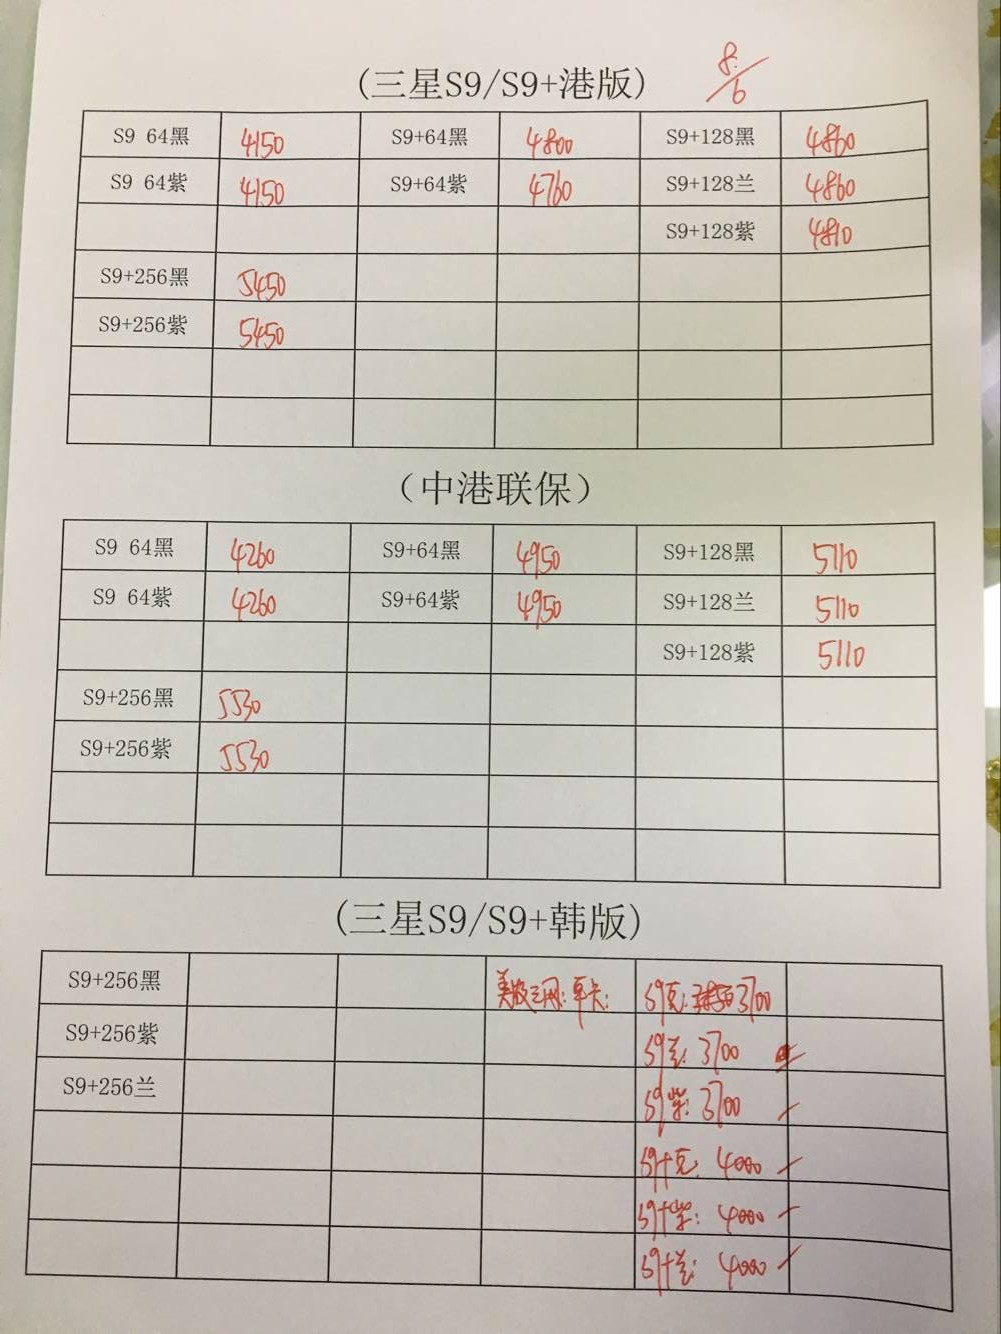 (三星S9/S9+港版) 8/6
S9 64黑 4150 S9+64黑 4800 S9+128黑 4860
S9 64紫 4150 S9+64紫 4760 S9+128兰 4860
S9+128紫 4810
S9+256黑 5450
S9+256紫 5450
（中港联保）
S9 64黑 4260 S9+64黑 4950 S9+128黑 5110
S9 64紫 4260 S9+64紫 4950 S9+128兰 5110
S9+128紫 5110
S9+256黑 5530
S9+256紫 5530
(三星S9/S9+韩版)
S9+256黑 美版三网:单卡: S9克: 3700
S9+256紫 S9兰: 3700
S9+256兰 S9紫: 3700
S9+克: 4000
S9+紫: 4000
S9+兰: 4000